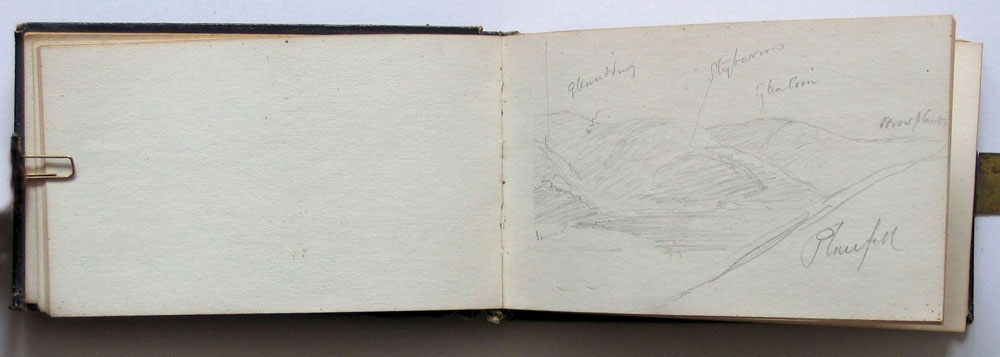 Glenridding
Stybarrow
Glen Coin
Place fell